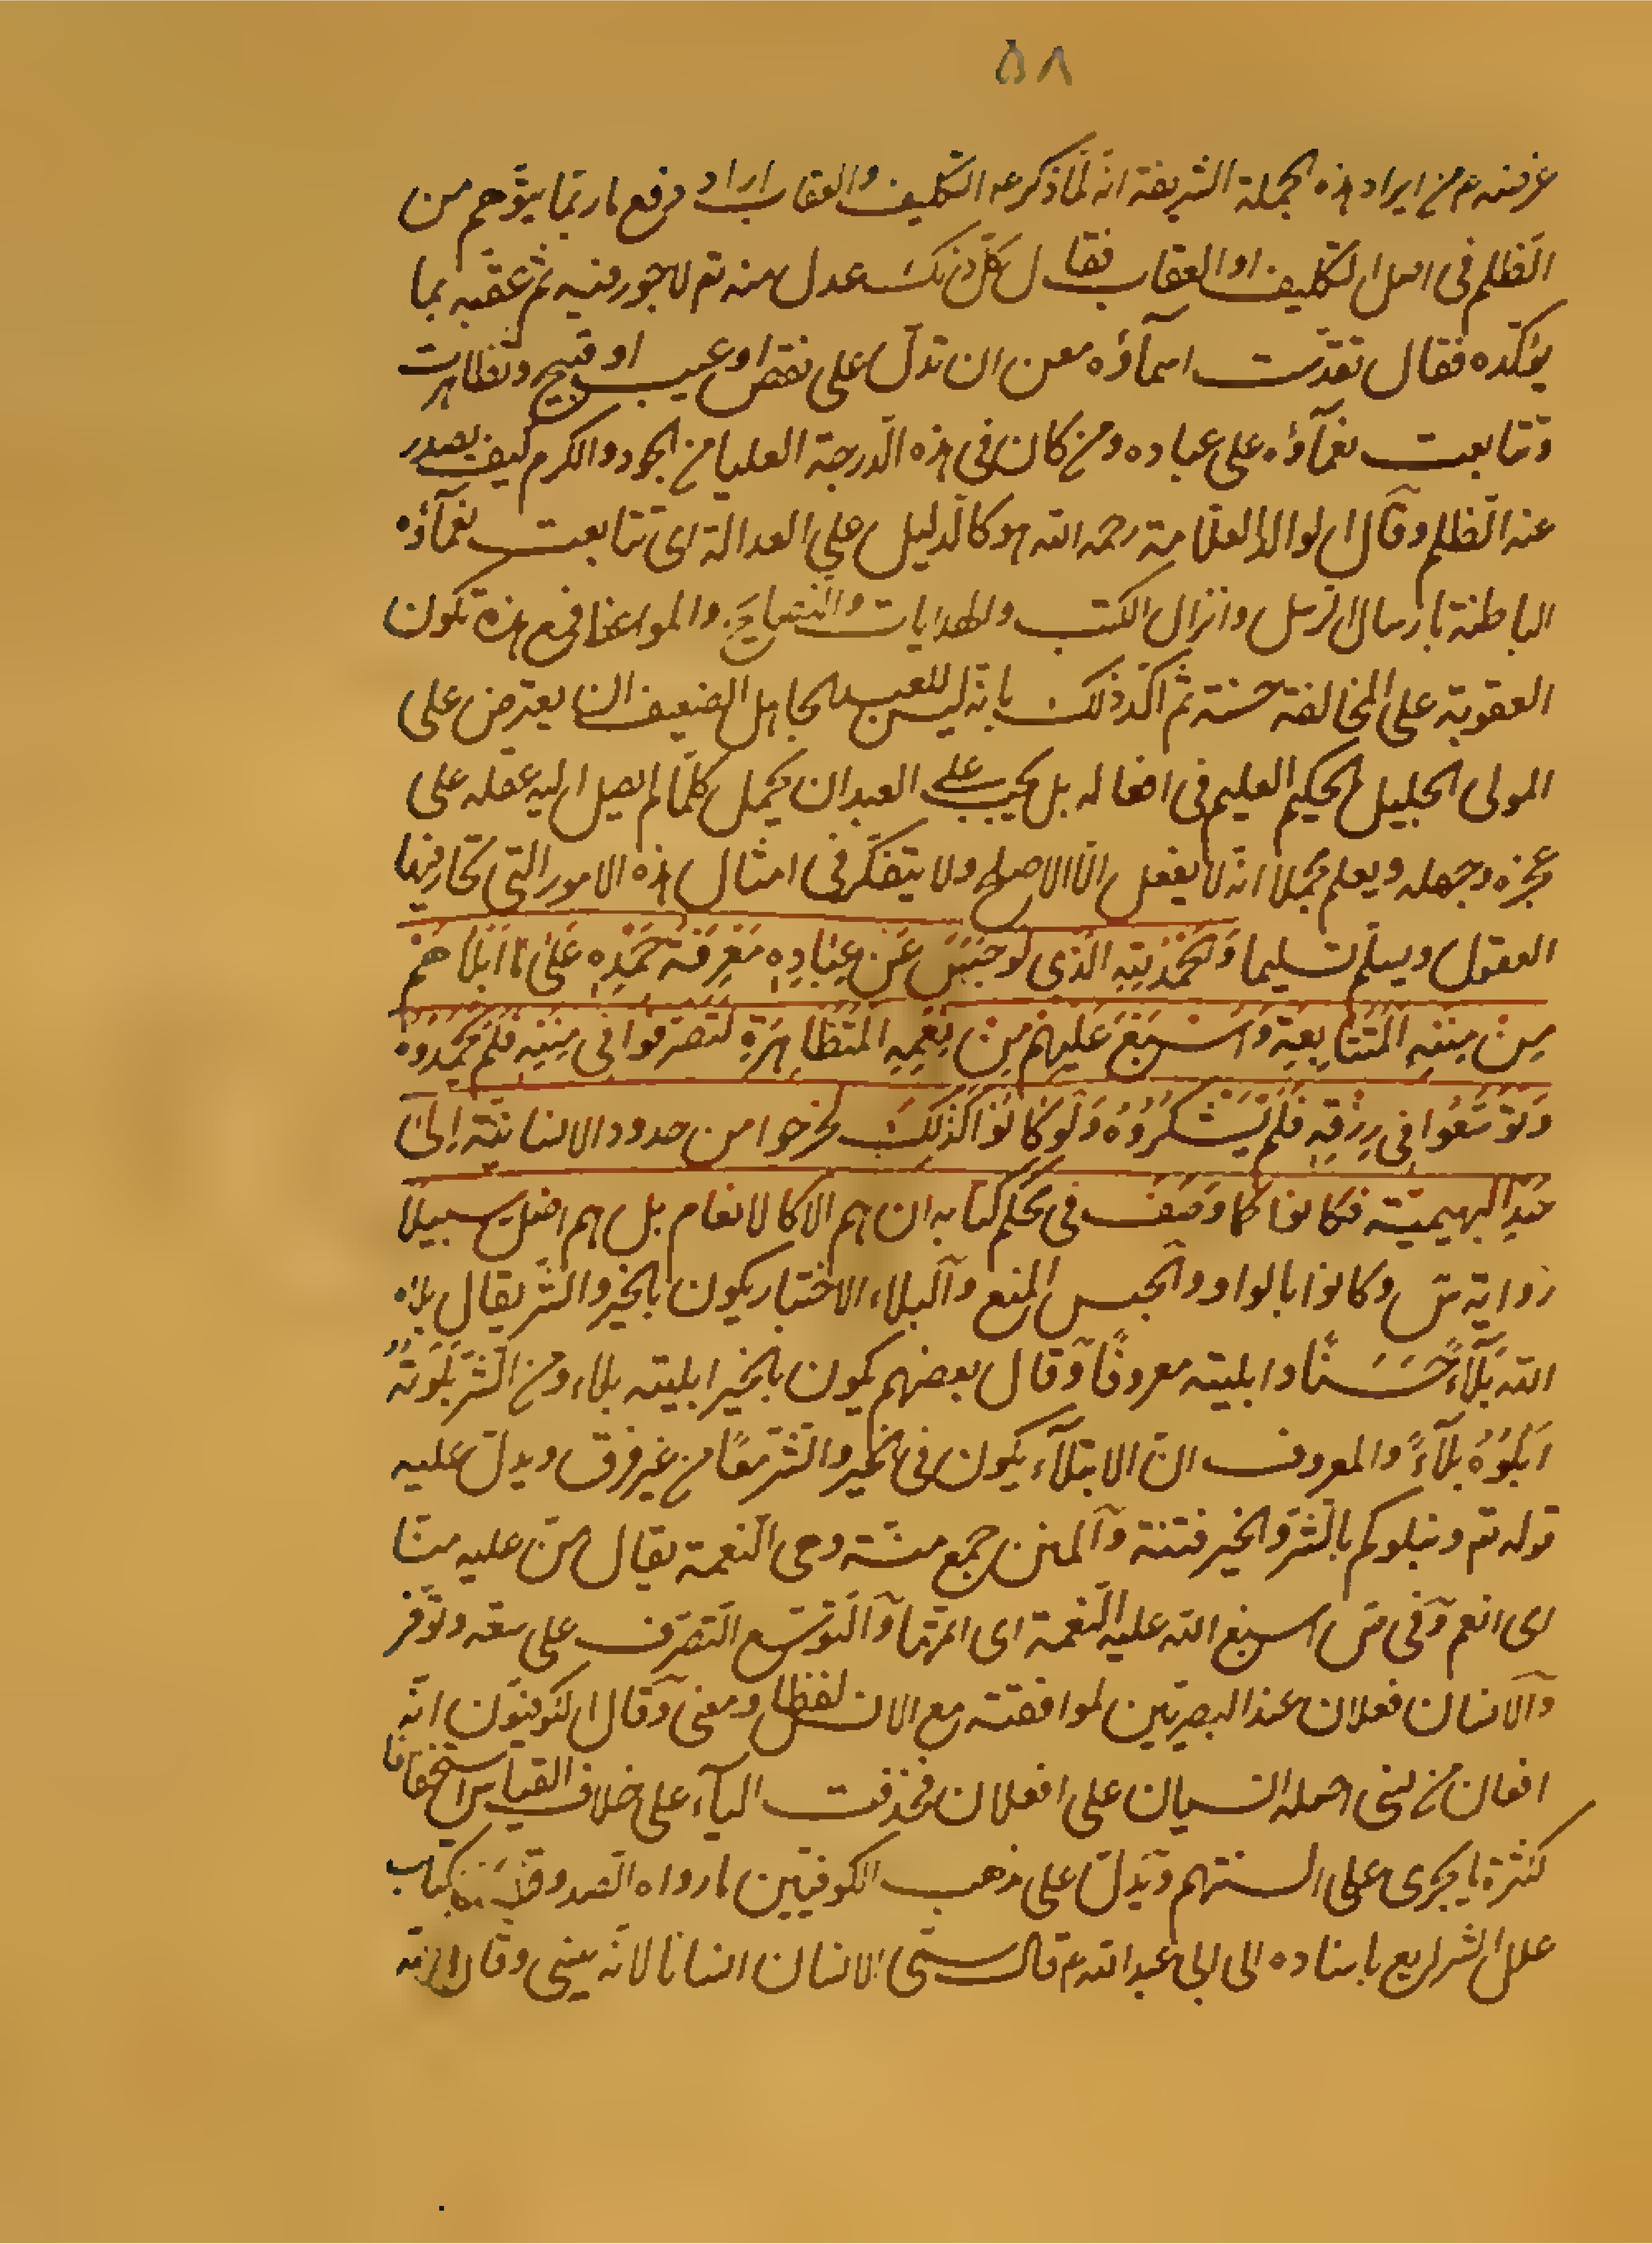 ٥٨
غرضه ع من ايراد هذه الجملة الشريفة انه لمّا ذكر ع التكليف والعقاب اراد رفع ما ربّما يتوهّم من
الظلم فى اصل التكليف او العقاب فقال كلّ ذلك عدل منه تع لا جور فيه ثم عقّبه بما
يؤكّده فقال تقدّست اسمآؤه من ان تدلّ على نقص او عيب او قبيح وتظاهرت
وتتابعت نعمآؤه على عباده ومن كان فى هذه الدرجة العليا من الجود والكرم كيف يصدر
عنه الظلم وقال الوالد العلّامة رحمه الله هو كالدليل على العدالة اى تتابعت نعمآؤه
الباطنة بارسال الرّسل وانزال الكتب والهدايات والنصايح والمواعظ فمع هذه تكون
العقوبة على المخالفة حسنة ثم اكّد ذلك بانّه ليس للعبد الجاهل الضعيف ان يعترض على
المولى الجليل الحكيم العليم فى افعاله بل يجب على العبد ان يحمل كلّما لم يصل اليه عقله على
عجزه وجهله ويعلم مجملا انه لا يفعل الّا الاصلح ولا يتفكّر فى امثال هذه الامور التى تحار فيها
العقول ويسلّم تسليما وَالْحَمْدُ لِلّٰهِ الَّذى لَوْ حَبَسَ عَنْ عِبَادِهِ مَعْرِفَةَ حَمْدِهِ عَلىٰ مَا اَبْلَاهُمْ
مِنْ مِنَنِهِ الْمُتَتَابِعَةِ وَاَسْبَغَ عَلَيْهِمْ مِنْ نِعَمِهِ الْمُتَظَاهِرَةِ لَتَصَرَّفُوا فى مِنَنِهِ فَلَمْ يَحْمَدُوهُ
وَتَوَسَّعُوا فِى رِزْقِهِ فَلَمْ يَشْكُرُوهُ وَلَوْ كَانُوا كَذٰلِكَ لخرجوا من حدود الانسانيّة اِلىٰ
حَدِّ البهيميّة فكانوا كما وَصَفَ فى محكم كتابه ان هم الا كالانعام بل هم اضلّ سبيلًا
رواية س وكانوا بالواو والحبس المنع وآلبلاء الاختبار يكون بالخير والشّر يقال بلاه
الله بَلَآءً حَسَنًا وابليته معروفًا وقال بعضهم يكون بالخير ابليته بلاء ومن الشّر بَلَوْتُهُ
اَبْلُوهُ بَلَآءً والمعروف انّ الابتلآء يكون فى الخير والشّر معًا من غير فرق ويدلّ عليه
قوله تع ونبلوكم بالشّر والخير فتنة وآلمنن جمع منّة وهى النعمة يقال منّ عليه منّا
اى انعم وفى ق اسبغ الله عليه النّعمة اى اتمّها وآلتّوسّع التّصرّف على سعة وتوفّر
وآلانسان فعلان عند البصريّين لموافقته مع الانس لفظا ومعنى وقال الكوفيّون انّه
افعان من نسى اصله انسيان على افعلان فحذفت اليآء على خلاف القياس استخفافا
لكثرة ما يجرى على السنتهم ويدلّ على مذهب الكوفيّين ما رواه الصدوق كتاب
علل الشرايع باسناده الى ابى عبد الله ع قال سمّى الانسان انسانا لانّه ينسى وقال الله